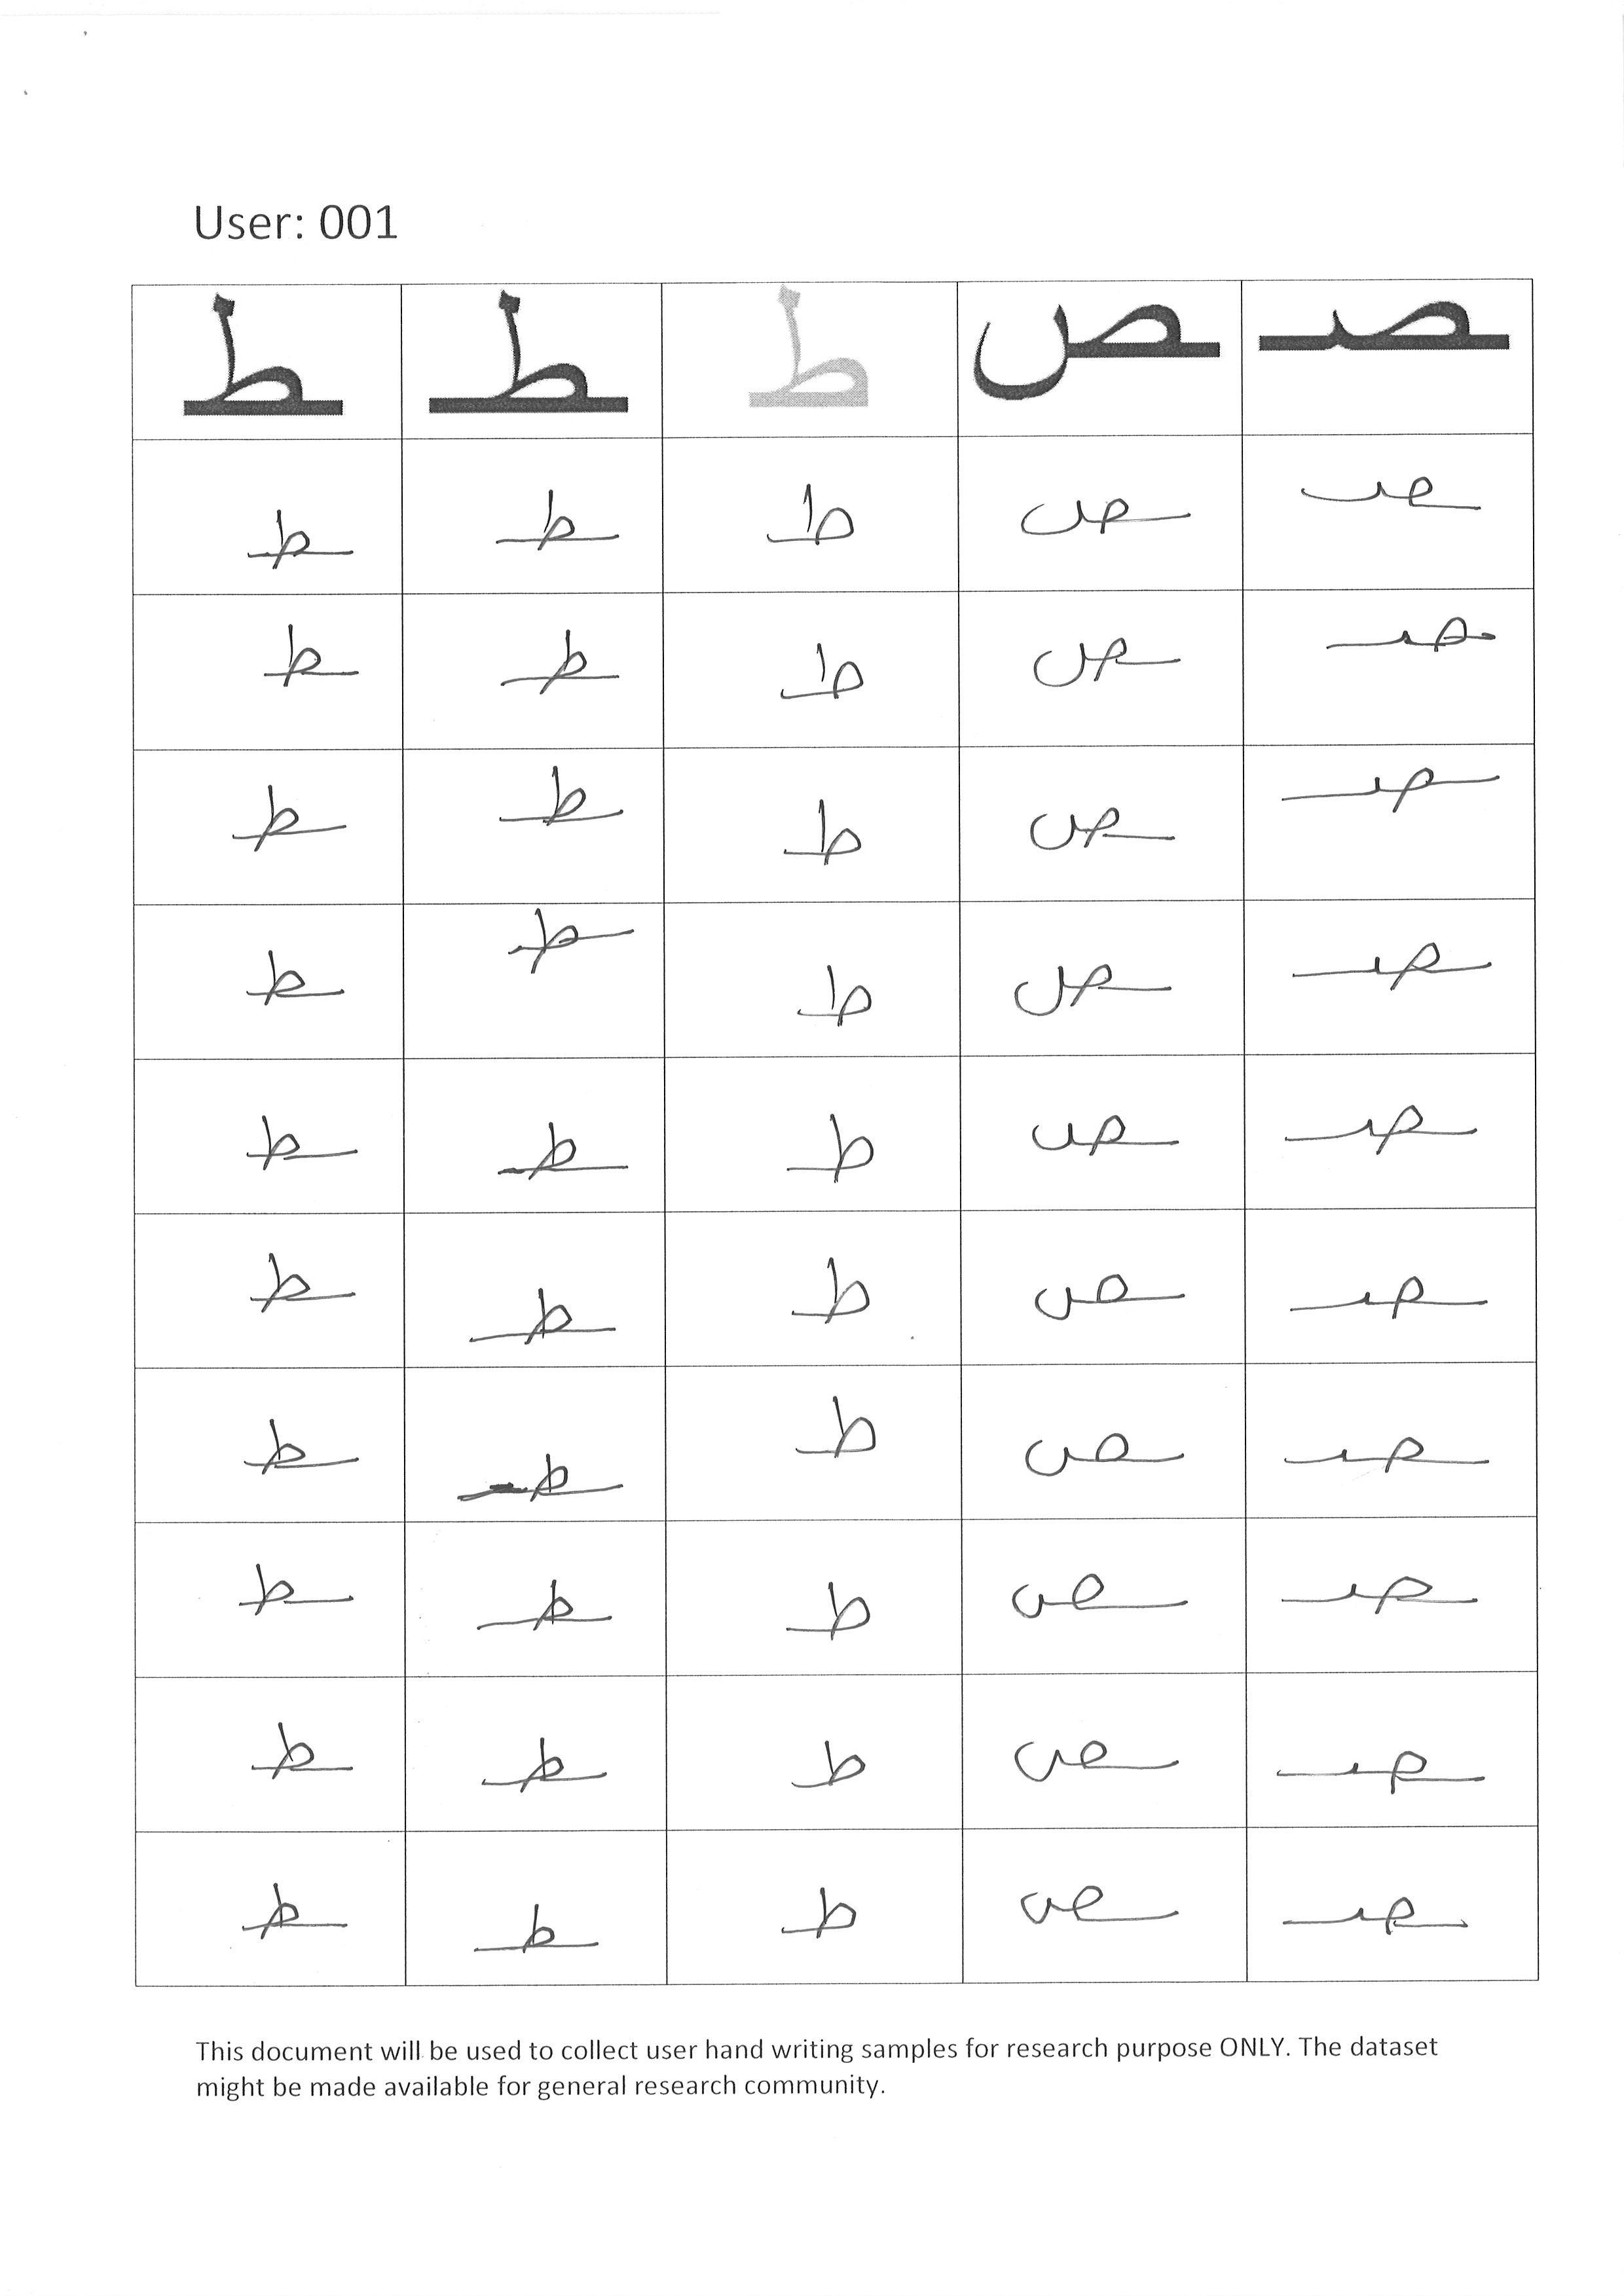 User: 001
ـصـ ـص ط ـطـ ـط
ـصـ ـص ط ـطـ ـط
ـصـ ـص ط ـطـ ـط
ـصـ ـص ط ـطـ ـط
ـصـ ـص ط ـطـ ـط
ـصـ ـص ط ـطـ ـط
ـصـ ـص ط ـطـ ـط
ـصـ ـص ط ـطـ ـط
ـصـ ـص ط ـطـ ـط
ـصـ ـص ط ـطـ ـط
ـصـ ـص ط ـطـ ـط
This document will be used to collect user hand writing samples for research purpose ONLY. The dataset
might be made available for general research community.